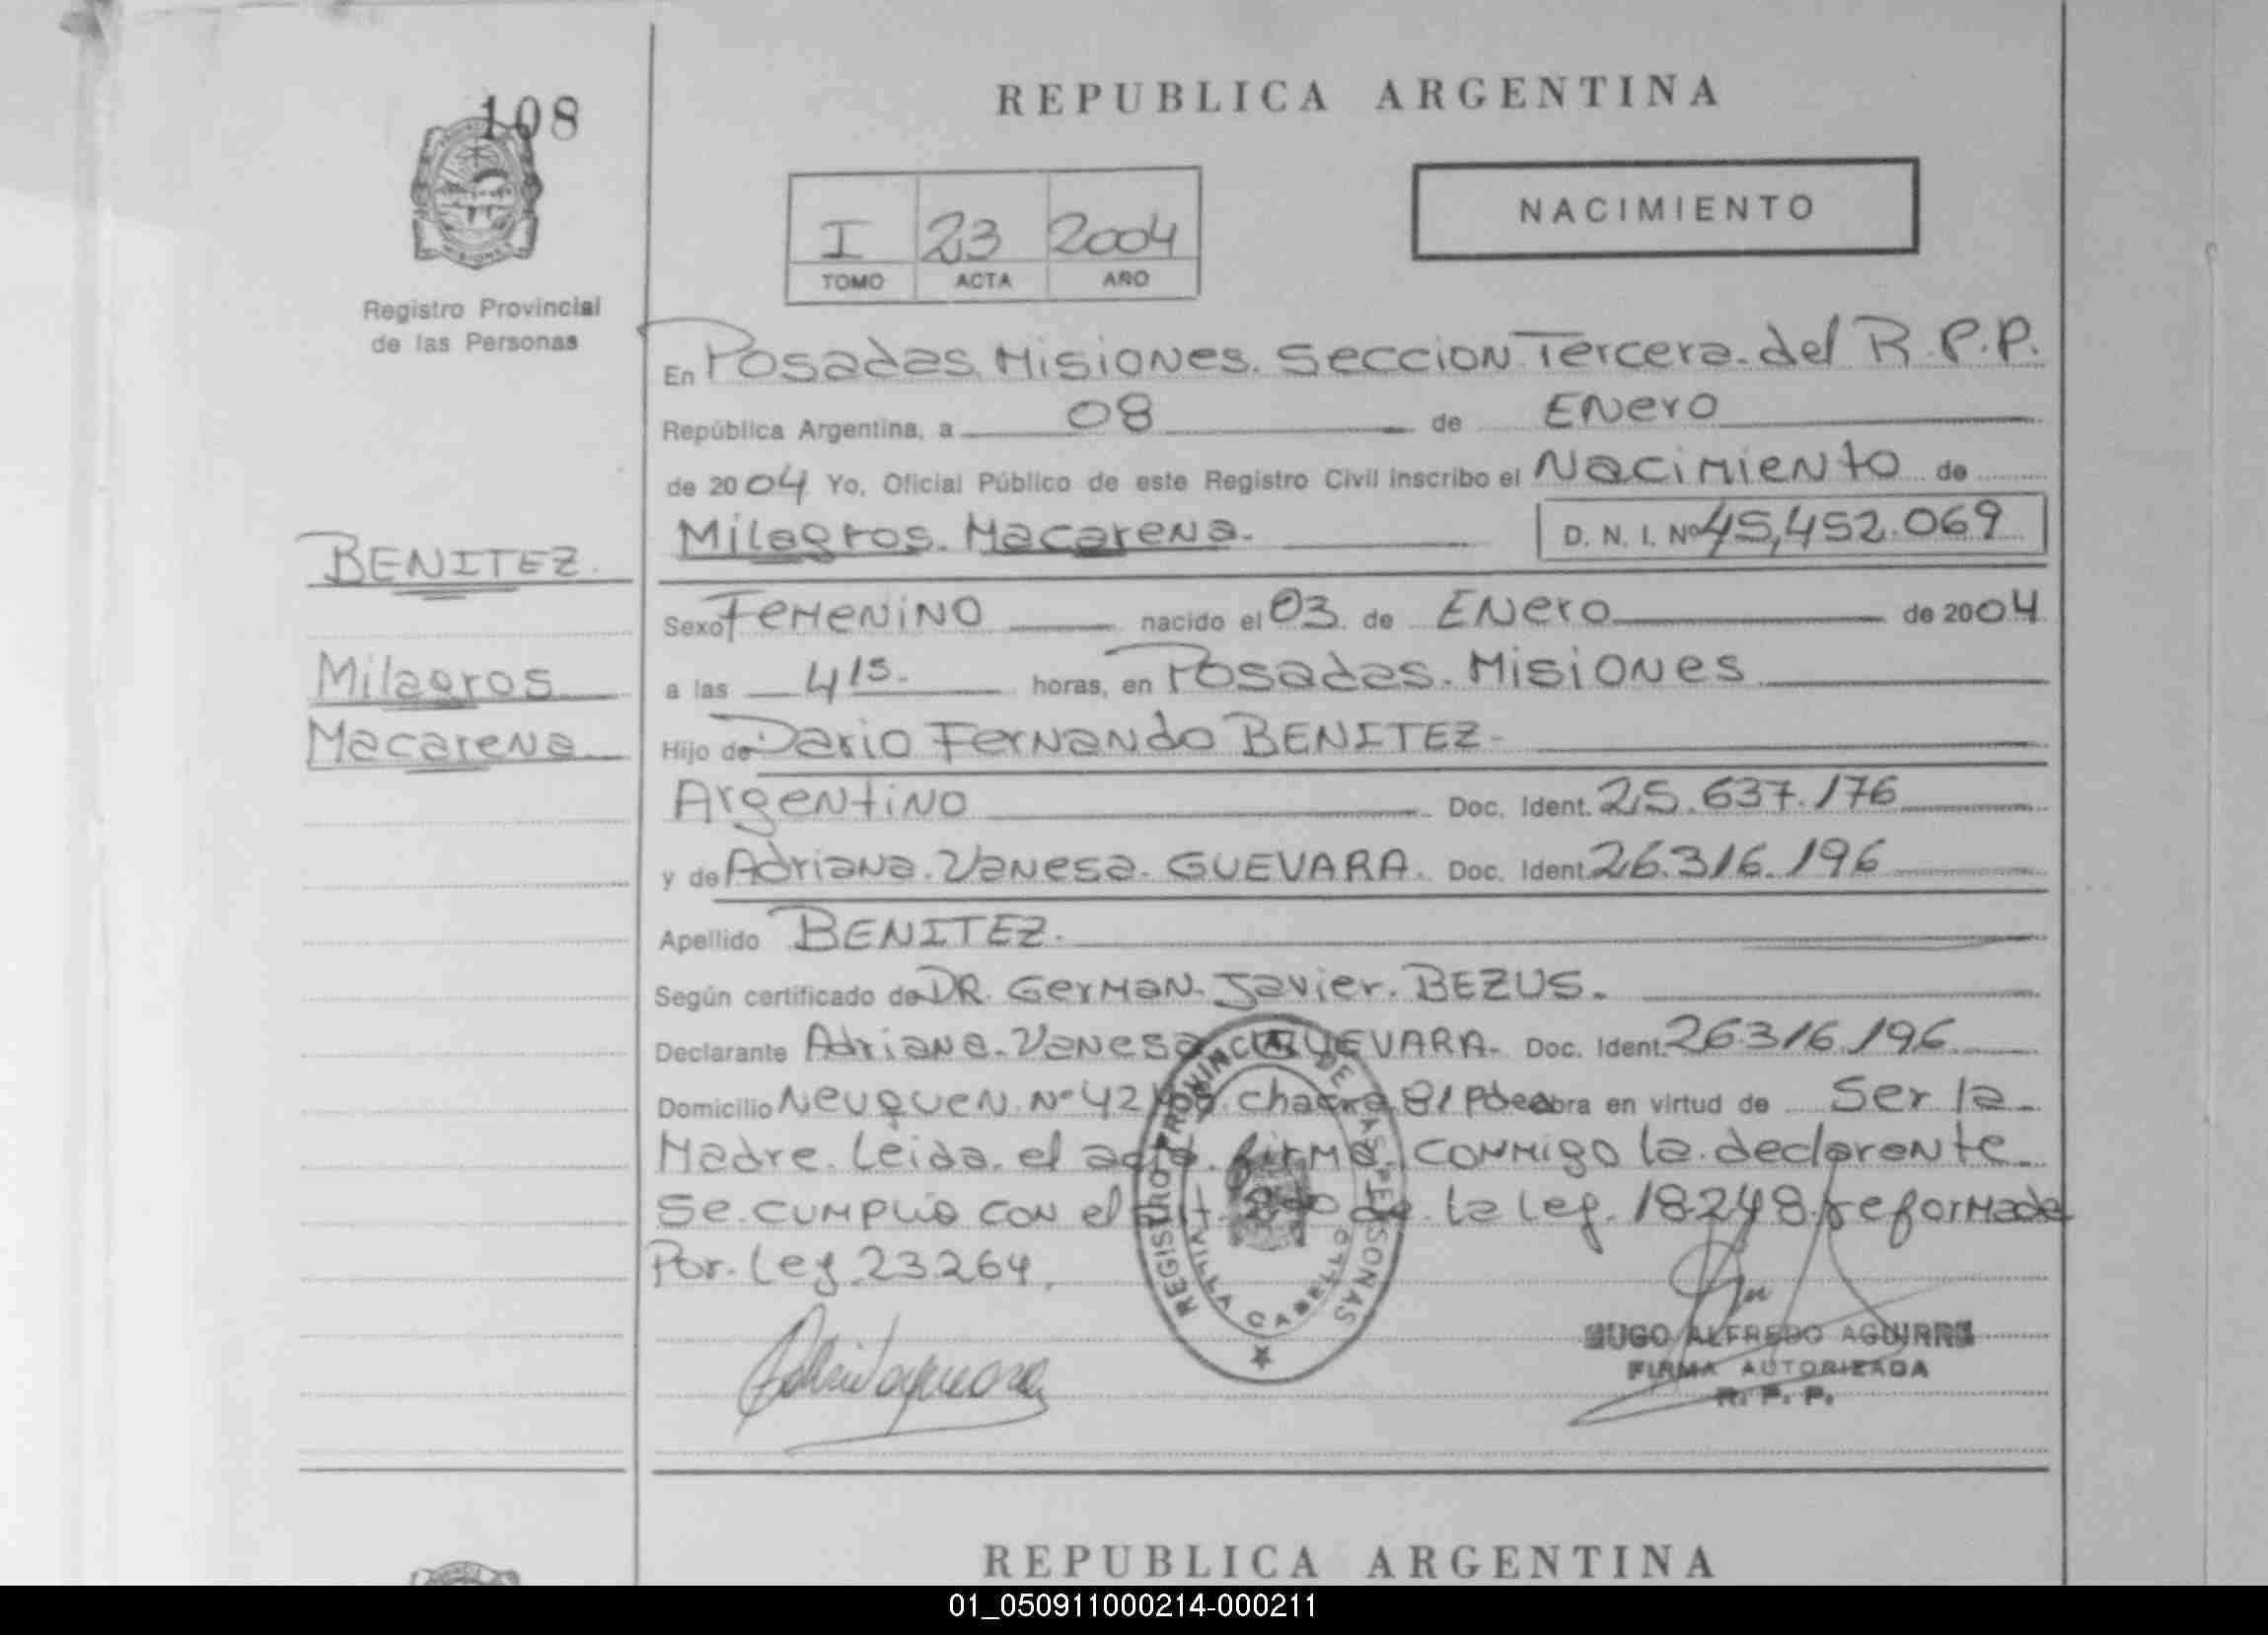 108
Registro Provincial
de las Personas
BENITEZ.
Milagros
Macarena
REPUBLICA ARGENTINA
I 23 2004
TOMO ACTA AÑO
NACIMIENTO
En Posadas. Misiones. Seccion Tercera. del R.P.P.
República Argentina, a 08 de Enero
de 2004 Yo, Oficial Público de este Registro Civil inscribo el Nacimiento de
Milagros. Macarena. D. N. I. Nº 45,452.069
Sexo Femenino nacido el 03. de Enero de 2004
a las 4 15. horas, en Posadas. Misiones
Hijo de Dario Fernando BENITEZ-
Argentino Doc. Ident. 25.637.176
y de Adriana. Vanesa. GUEVARA. Doc. Ident. 26.316.196
Apellido BENITEZ.
Según certificado de DR. German. Javier. BEZUS.
Declarante Adriana. Vanesa GUEVARA. Doc. Ident. 26.316.196
Domicilio Neuquen. Nº 42 chacra 81 obra en virtud de Ser la
Madre. Leida. el acta. firma. conmigo la declarante
Se. cumplio con el art. de la Ley. 18.248. reformada
Por. Ley. 23264.
REGISTRO PROVINCIAL DE LAS PERSONAS
VILLA CABELLO
HUGO ALFREDO AGUIRRE
FIRMA AUTORIZADA
R. P. P.
REPUBLICA ARGENTINA
01_050911000214-000211